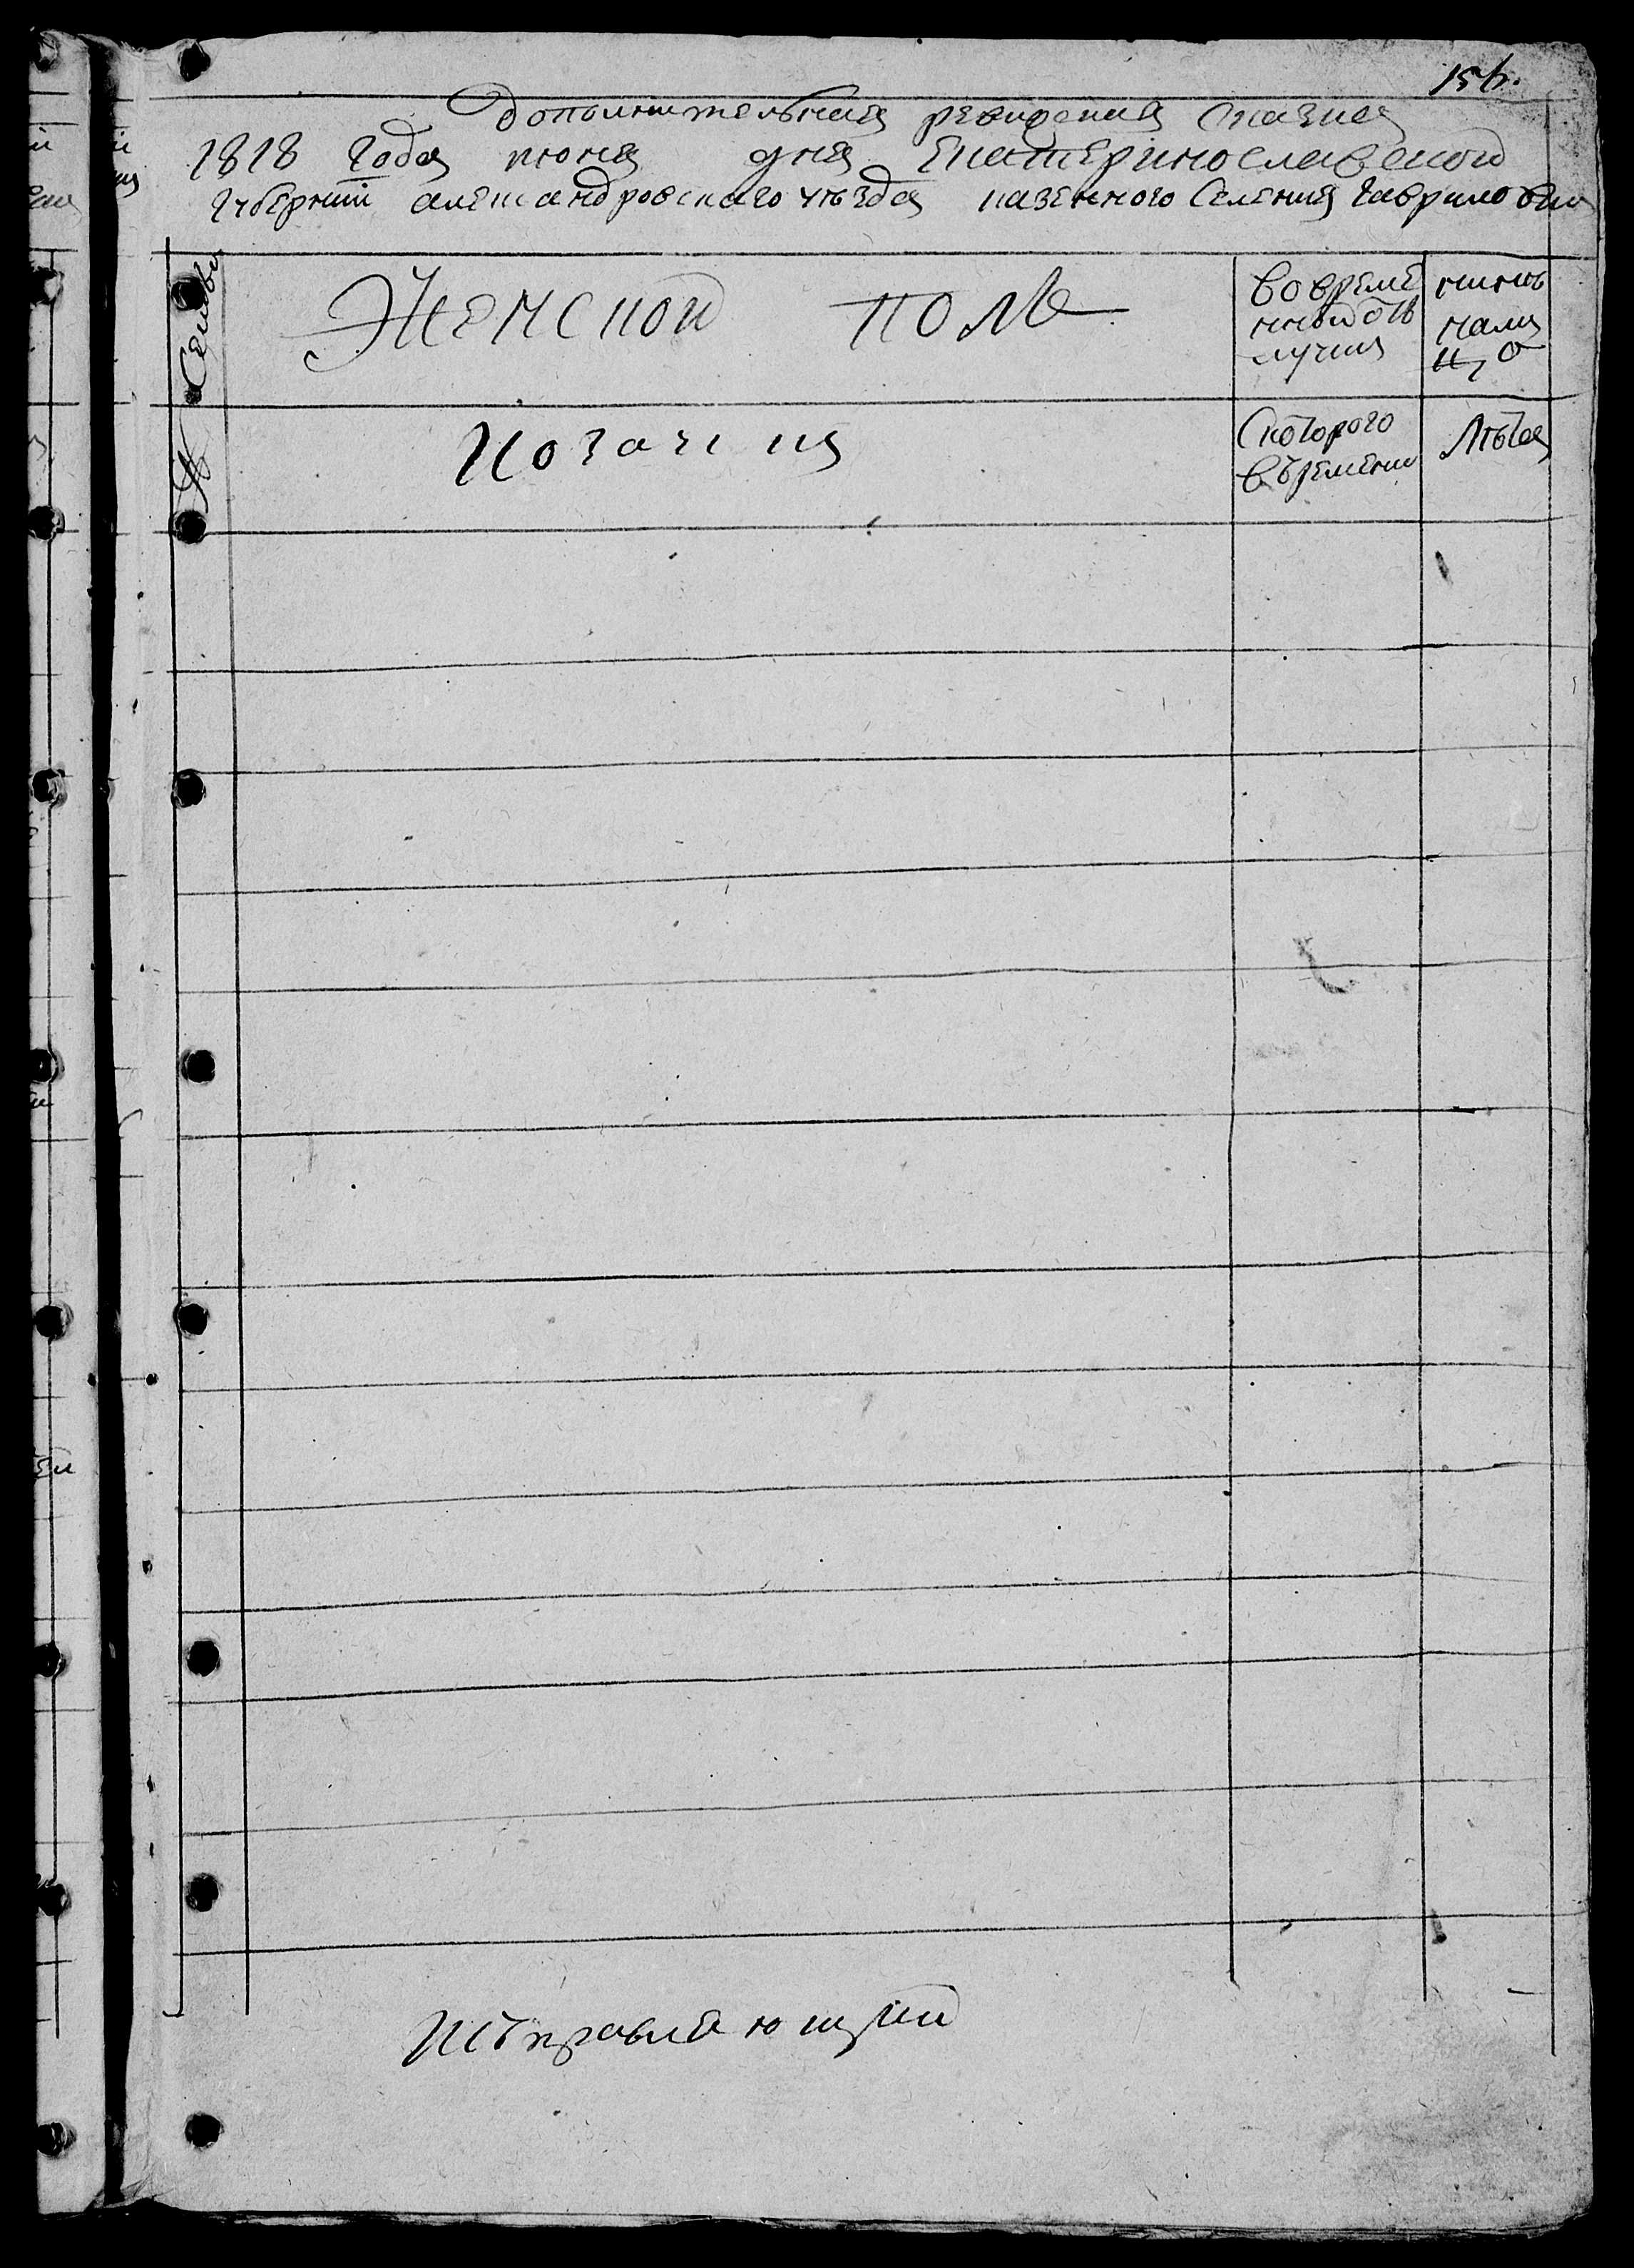 154.
дополнительная ревиская сказка
1818 года июня дня Екатеринославской
губернии александровского уезда казенного селения гавриловки
№ Семьи
Женской пол
во время
нной отъ
лучки
нынъ
нали
цо
Козачия
с которого
въремени
Лѣта
Исправляющий